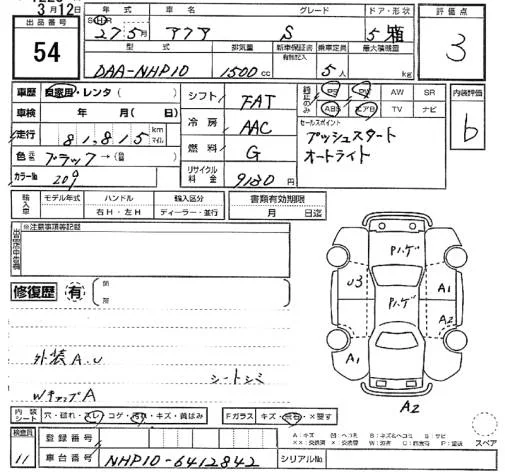 3月12日
出品番号
54
年式 車名 グレード ドア・形状
27年5月 アクア S 5 箱
型式 排気量 新車保証書 有無記入 乗車定員 最大積載量
DAA-NHP10 1500cc 5人 kg
評価点
3
車歴 自家用・レンタ( )
車検 年 月( 日)
走行 81,815 km マイル
色 元色 ブラック→(色 )
カラーNo 209
シフト FAT
冷房 AAC
燃料 G
リサイクル料金 9180円
純正のみ
PS PW AW SR
ABS エアB TV ナビ
セールスポイント
プッシュスタート
オートライト
内装評価
b
輸入車 モデル年式 ハンドル 輸入区分 書類有効期限
右H・左H ディーラー・並行 月 日迄
※注意事項等記載
修復歴 有
外装A.U
シートシミ
WキップA
Pハゲ
U3
Pハゲ
A1
A2
A1
A2
内装シート 穴・破れ・スレ・コゲ・汚れ・キズ・黄ばみ
Fガラス キズ・飛石・×要す
検査員
11
登録番号
車台番号 NHP10-6412842 シリアルNo.
スペア